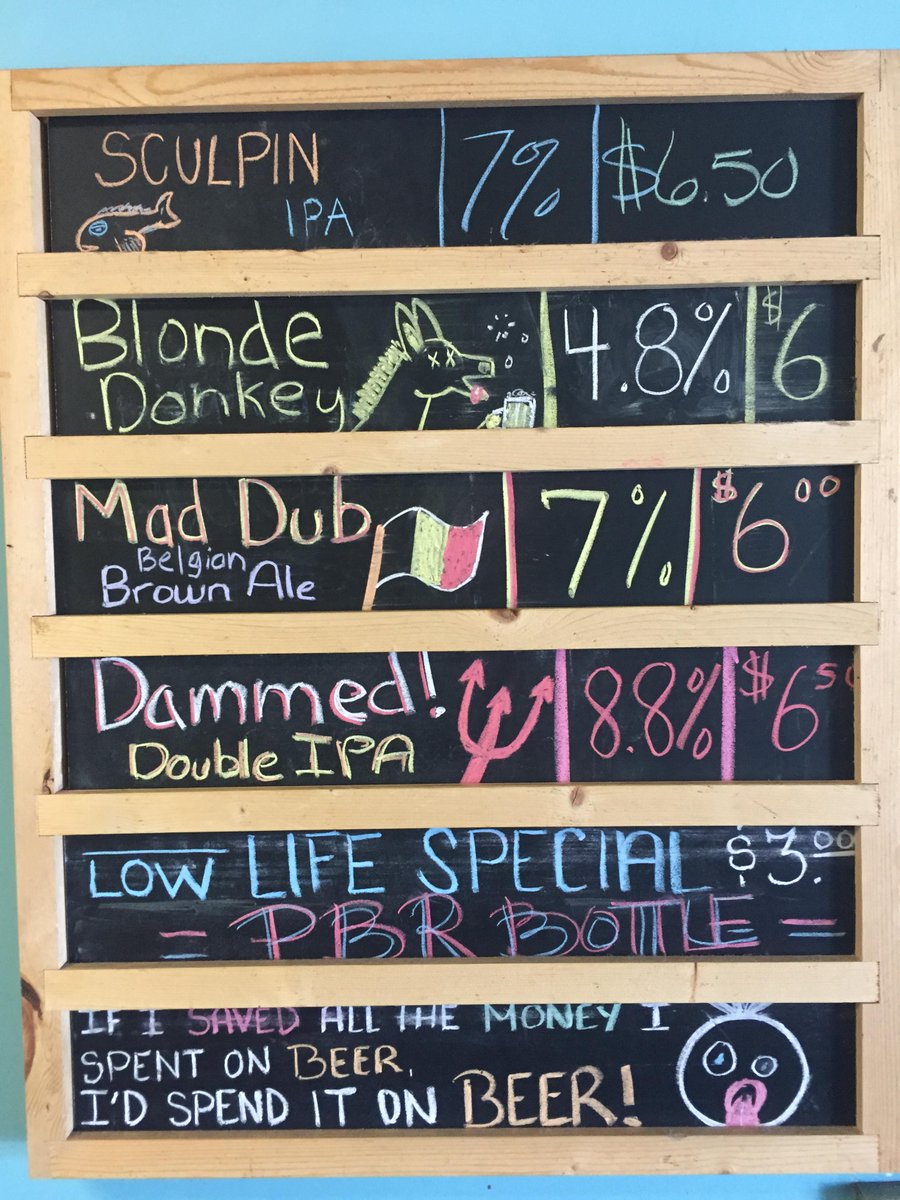 SCULPIN 7% $6.50
IPA
Blonde 4.8% $6
Donkey
Mad Dub 7% $6.00
Belgian
Brown Ale
Dammed! 8.8% $6.50
Double IPA
LOW LIFE SPECIAL $3.00
= PBR BOTTLE =
IF I SAVED ALL THE MONEY I
SPENT ON BEER,
I'D SPEND IT ON BEER!